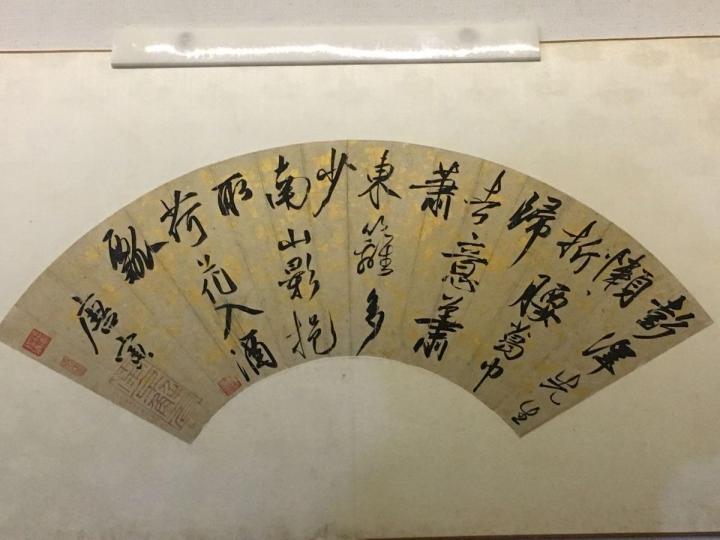 彭澤先生
懶
折腰葛巾
歸
去意蕭
蕭
東籬多
少
南山影挹
取
荷花入酒
瓢
唐寅